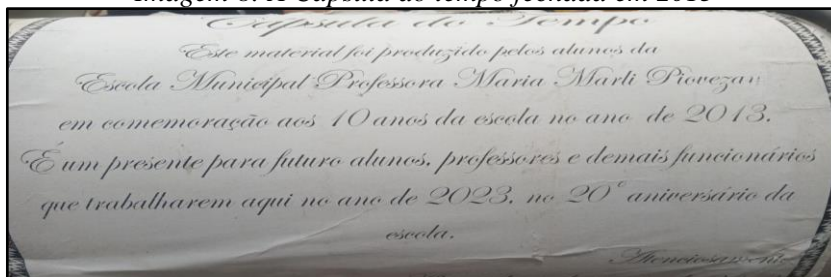 Imagem 6: A Cápsula do Tempo fechada em 2013
Cápsula do Tempo
Este material foi produzido pelos alunos da
Escola Municipal Professora Maria Marli Piovezan
em comemoração aos 10 anos da escola no ano de 2013.
É um presente para futuro alunos, professores e demais funcionários
que trabalharem aqui no ano de 2023, no 20° aniversário da
escola.
Atenciosamente